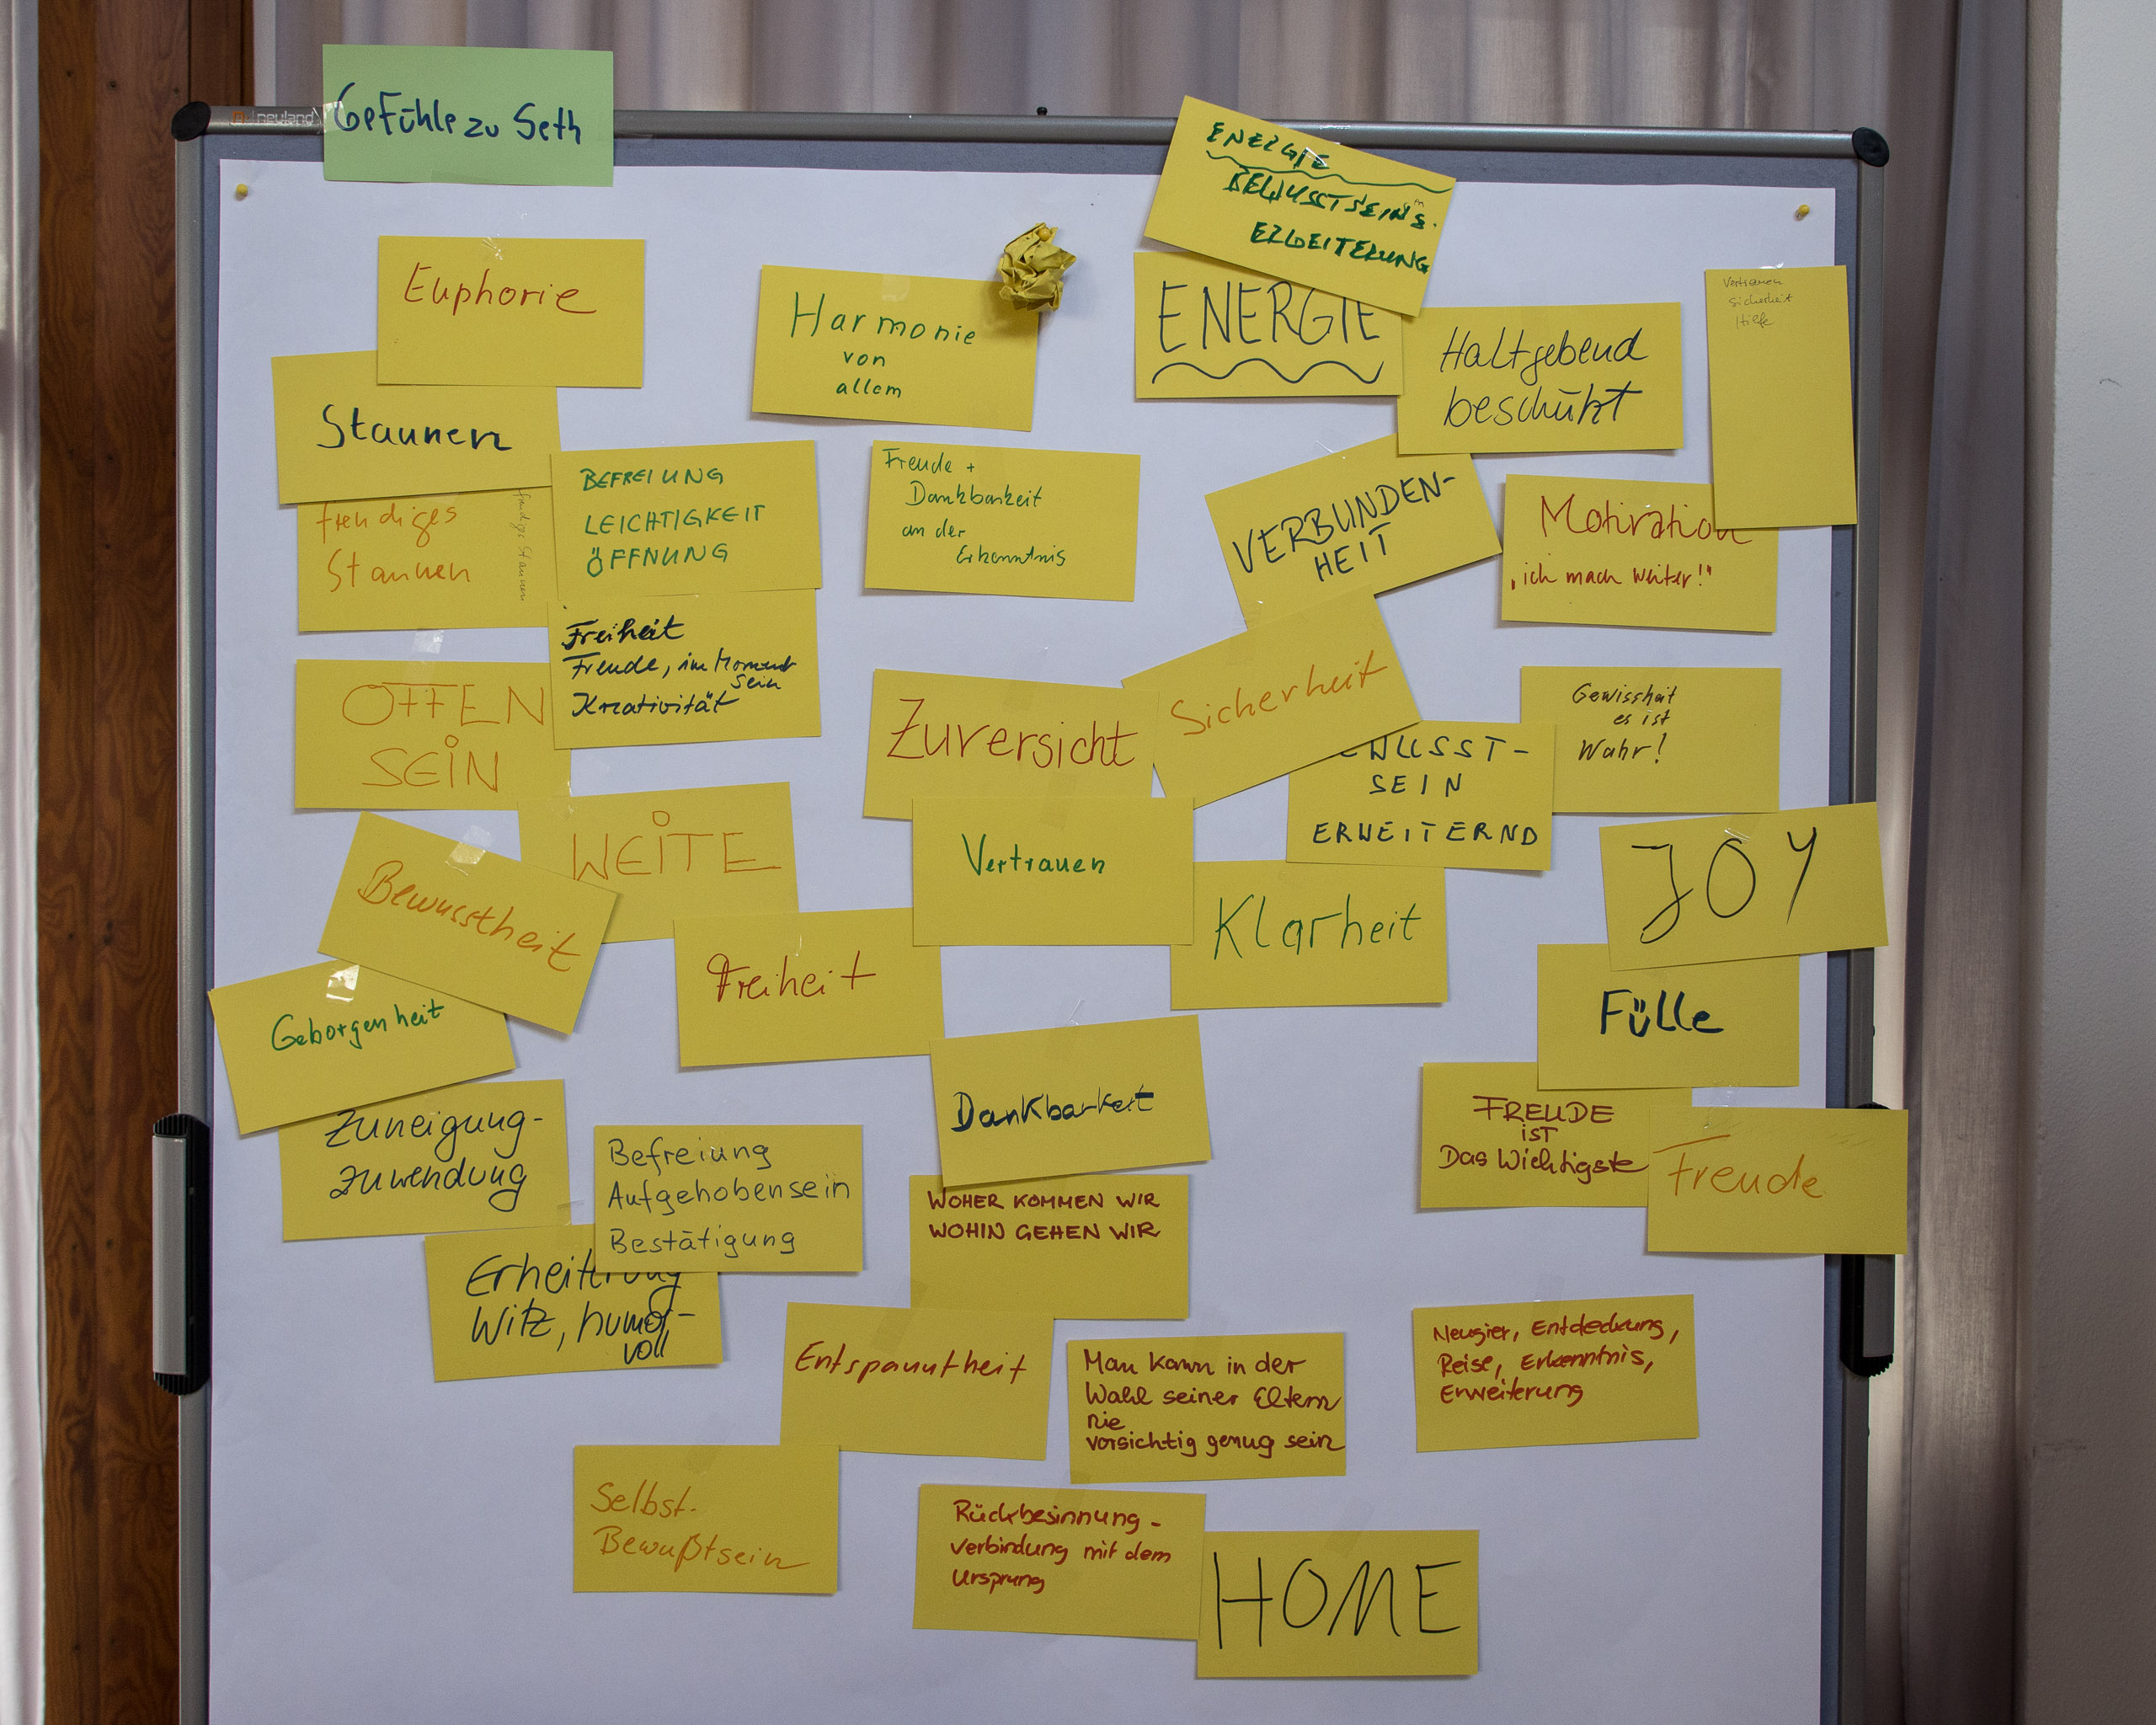 Gefühle zu Seth
neuland
ENERGIE
BEWUSSTSEINS-
ERWEITERUNG
Euphorie
Harmonie
von
allem
ENERGIE
Haltgebend
beschützt
Vertrauen
Sicherheit
Hilfe
Staunen
freudiges
Staunen
freudige Staunen
BEFREIUNG
LEICHTIGKEIT
ÖFFNUNG
Freude +
Dankbarkeit
an der
Erkenntnis
VERBUNDEN-
HEIT
Motivation
„ich mach weiter!"
Freiheit
Freude, im Moment
sein
Kreativität
OFFEN
SEIN
Zuversicht
Sicherheit
Gewissheit
es ist
Wahr!
EWUSST-
SEIN
ERWEITERND
WEITE
Vertrauen
JOY
Bewusstheit
Klarheit
Freiheit
Geborgenheit
Fülle
Dankbarkeit
Zuneigung-
zuwendung
Befreiung
Aufgehobensein
Bestätigung
FREUDE
IST
Das Wichtigste
Freude
WOHER KOMMEN WIR
WOHIN GEHEN WIR
Erheiterung
Witz, humor-
voll
Entspanntheit
Man kann in der
Wahl seiner Eltern
nie
vorsichtig genug sein
Neugier, Entdeckung,
Reise, Erkenntnis,
Erweiterung
Selbst-
Bewußtsein
Rückbesinnung -
verbindung mit dem
Ursprung
HOME